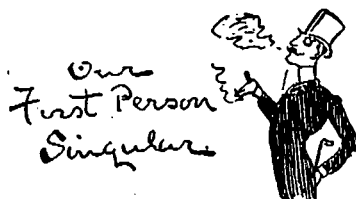 Our
First Person
Singular